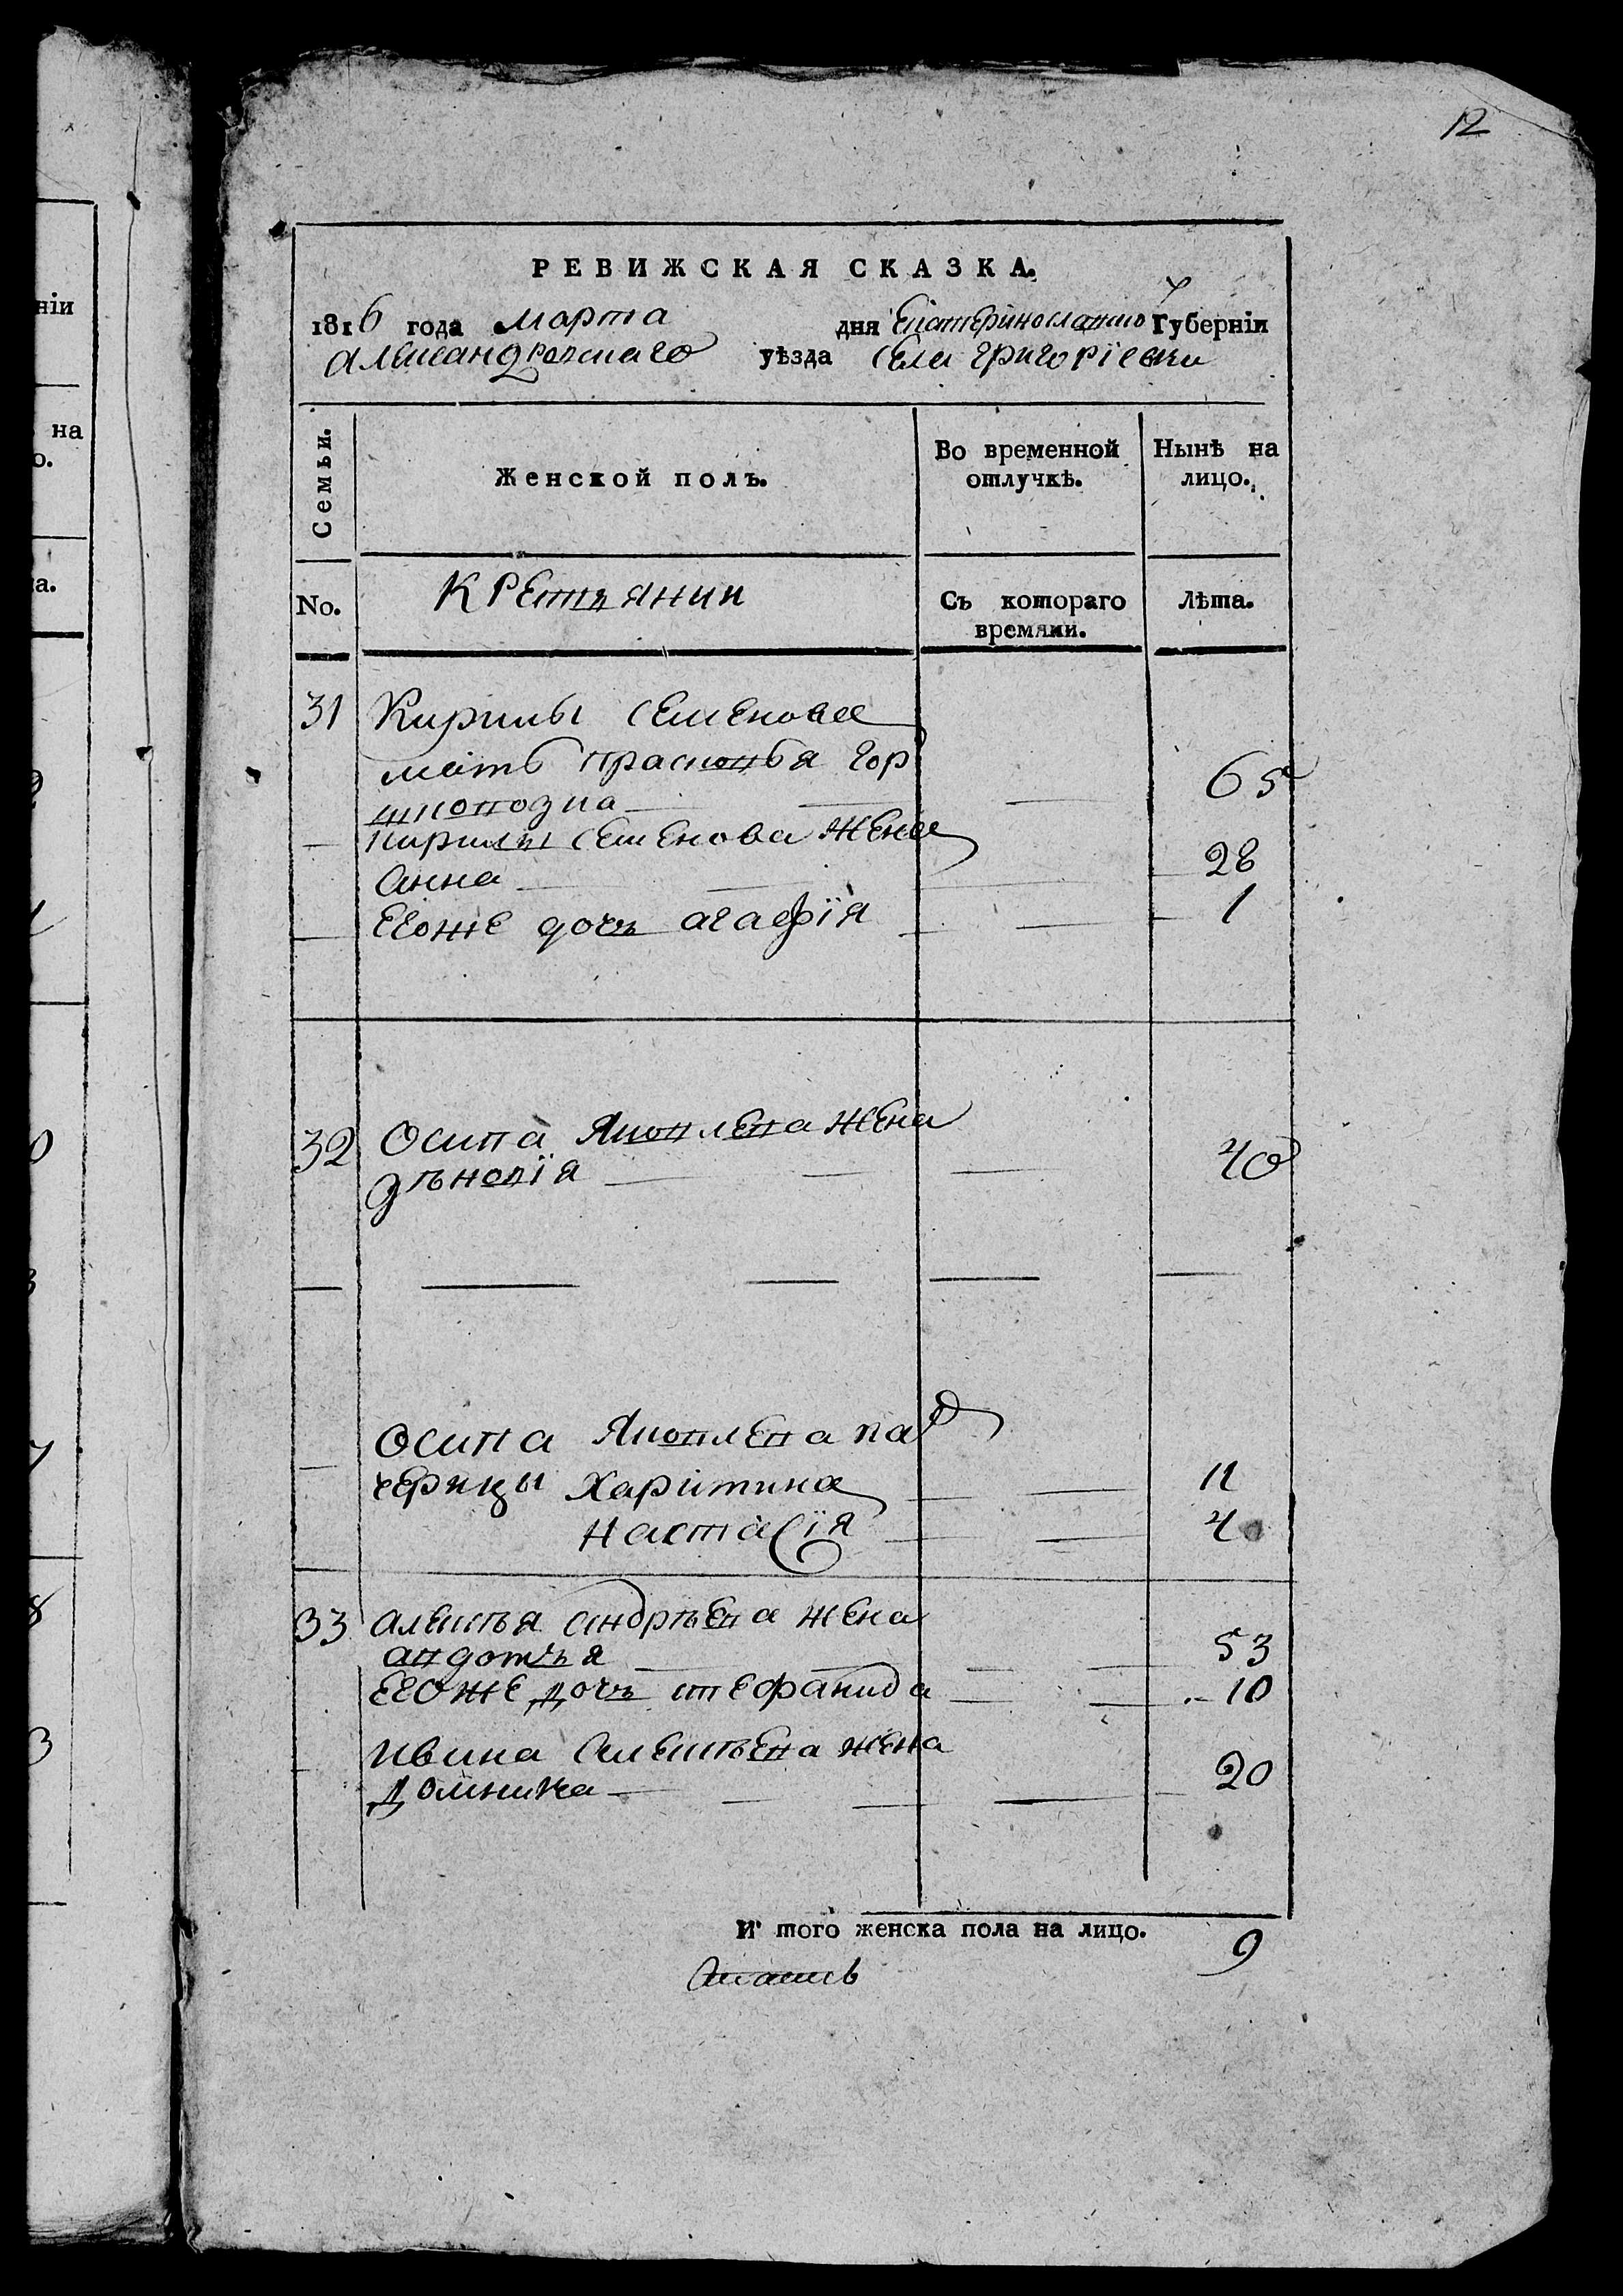 12
РЕВИЖСКАЯ СКАЗКА.
1816 года Марта дня Екатеринославской Губернїи
Александровскаго уѣзда села григорїевки
Семьи. Женской полъ. Во временной отлучкѣ. Нынѣ на лицо.
No. Крестьянии Съ котораго времяни. Лѣта.
31 Кирилы Семенова
мать прасковья гор
шковозиа 65
кирилы Семенова жена
анна 28
егоже дочь агафїя 1
32 Осипа Яковлева жена
зѣновїя 40
Осипа Яковлева пад
черицы Харитина 11
настасїя 4
33 алексѣя андрѣева жена
авдотья 53
егоже дочь стефанида 10
ивана алексѣева жена
домника 20
И того женска пола на лицо. 9